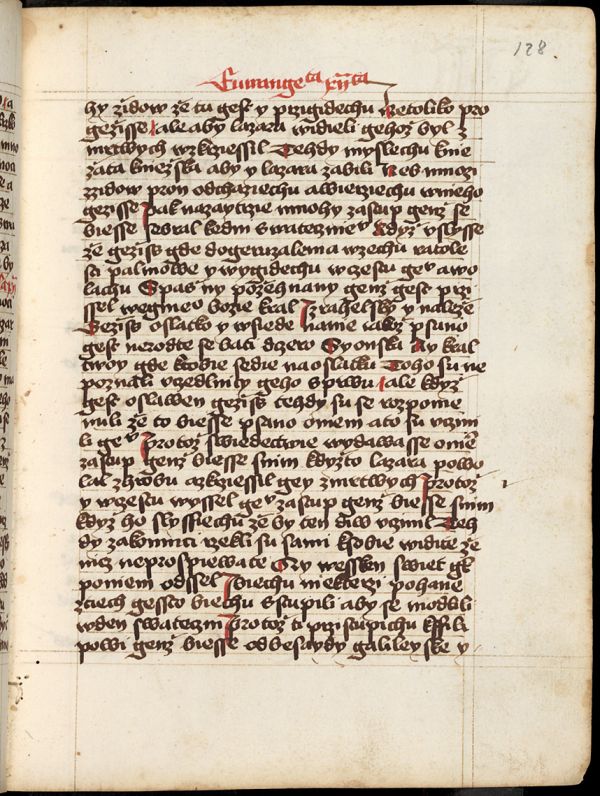 128
Ewange ta xii ta
hy židow že tu gest y przigidechu Netoliko pro
gezisse ale aby lazara widieli gehož byl z
mrtwych wzkrziessil Tehdy myslechu knie
žata kniežska aby y lazara zabili Neb mnozi
zzidow pron odchaziechu a wierziechu wneho
gezisse Pak nazaytrzie mnohy zastup genž se
biesse sebral kedni swatecznie Když vslysse
že gezišs gde do geruzalema wzechu ratole
sti palmowe y wygidechu wzcestu gev a wo
lachu Spas ny požehnany genž gest przi
ssel wegmeno božie kral Izrahelsky y naleže
Gezišs oslatko y wsiede nanie iakož psano
gest nerodte se bati dzero Syonska Ay kral
twoy gde k tobie sedie na oslatku Toho su ne
poznali vczedlnicy geho sprwu ale když
gest oslawen gezišs tehdy su se wzpome
nuli že to biesse psano o niem a to su vczini
li gev Protož swiedectwie wydawasse o niem
zastup genž biesse s nim kdyžto lazara powo
lal z hrobu a zkrziessil gey z mrtwych Protož
y wzcestu wyssel gev zastup genž biesse s nim
kdyz ho slyssiechu že by ten diw vczinil Teh
dy zakonnici rzekli su sami k sobie widite že
nicz neprospiewate Ozy wessken swiet gt
po niem odssel Biechu niekterzi pohane
z tiech gessto biechu vstupili aby se modlili
w den swateczni Protož ti przistupichu k ffili
powi genž biesse od besaydy galileyske y